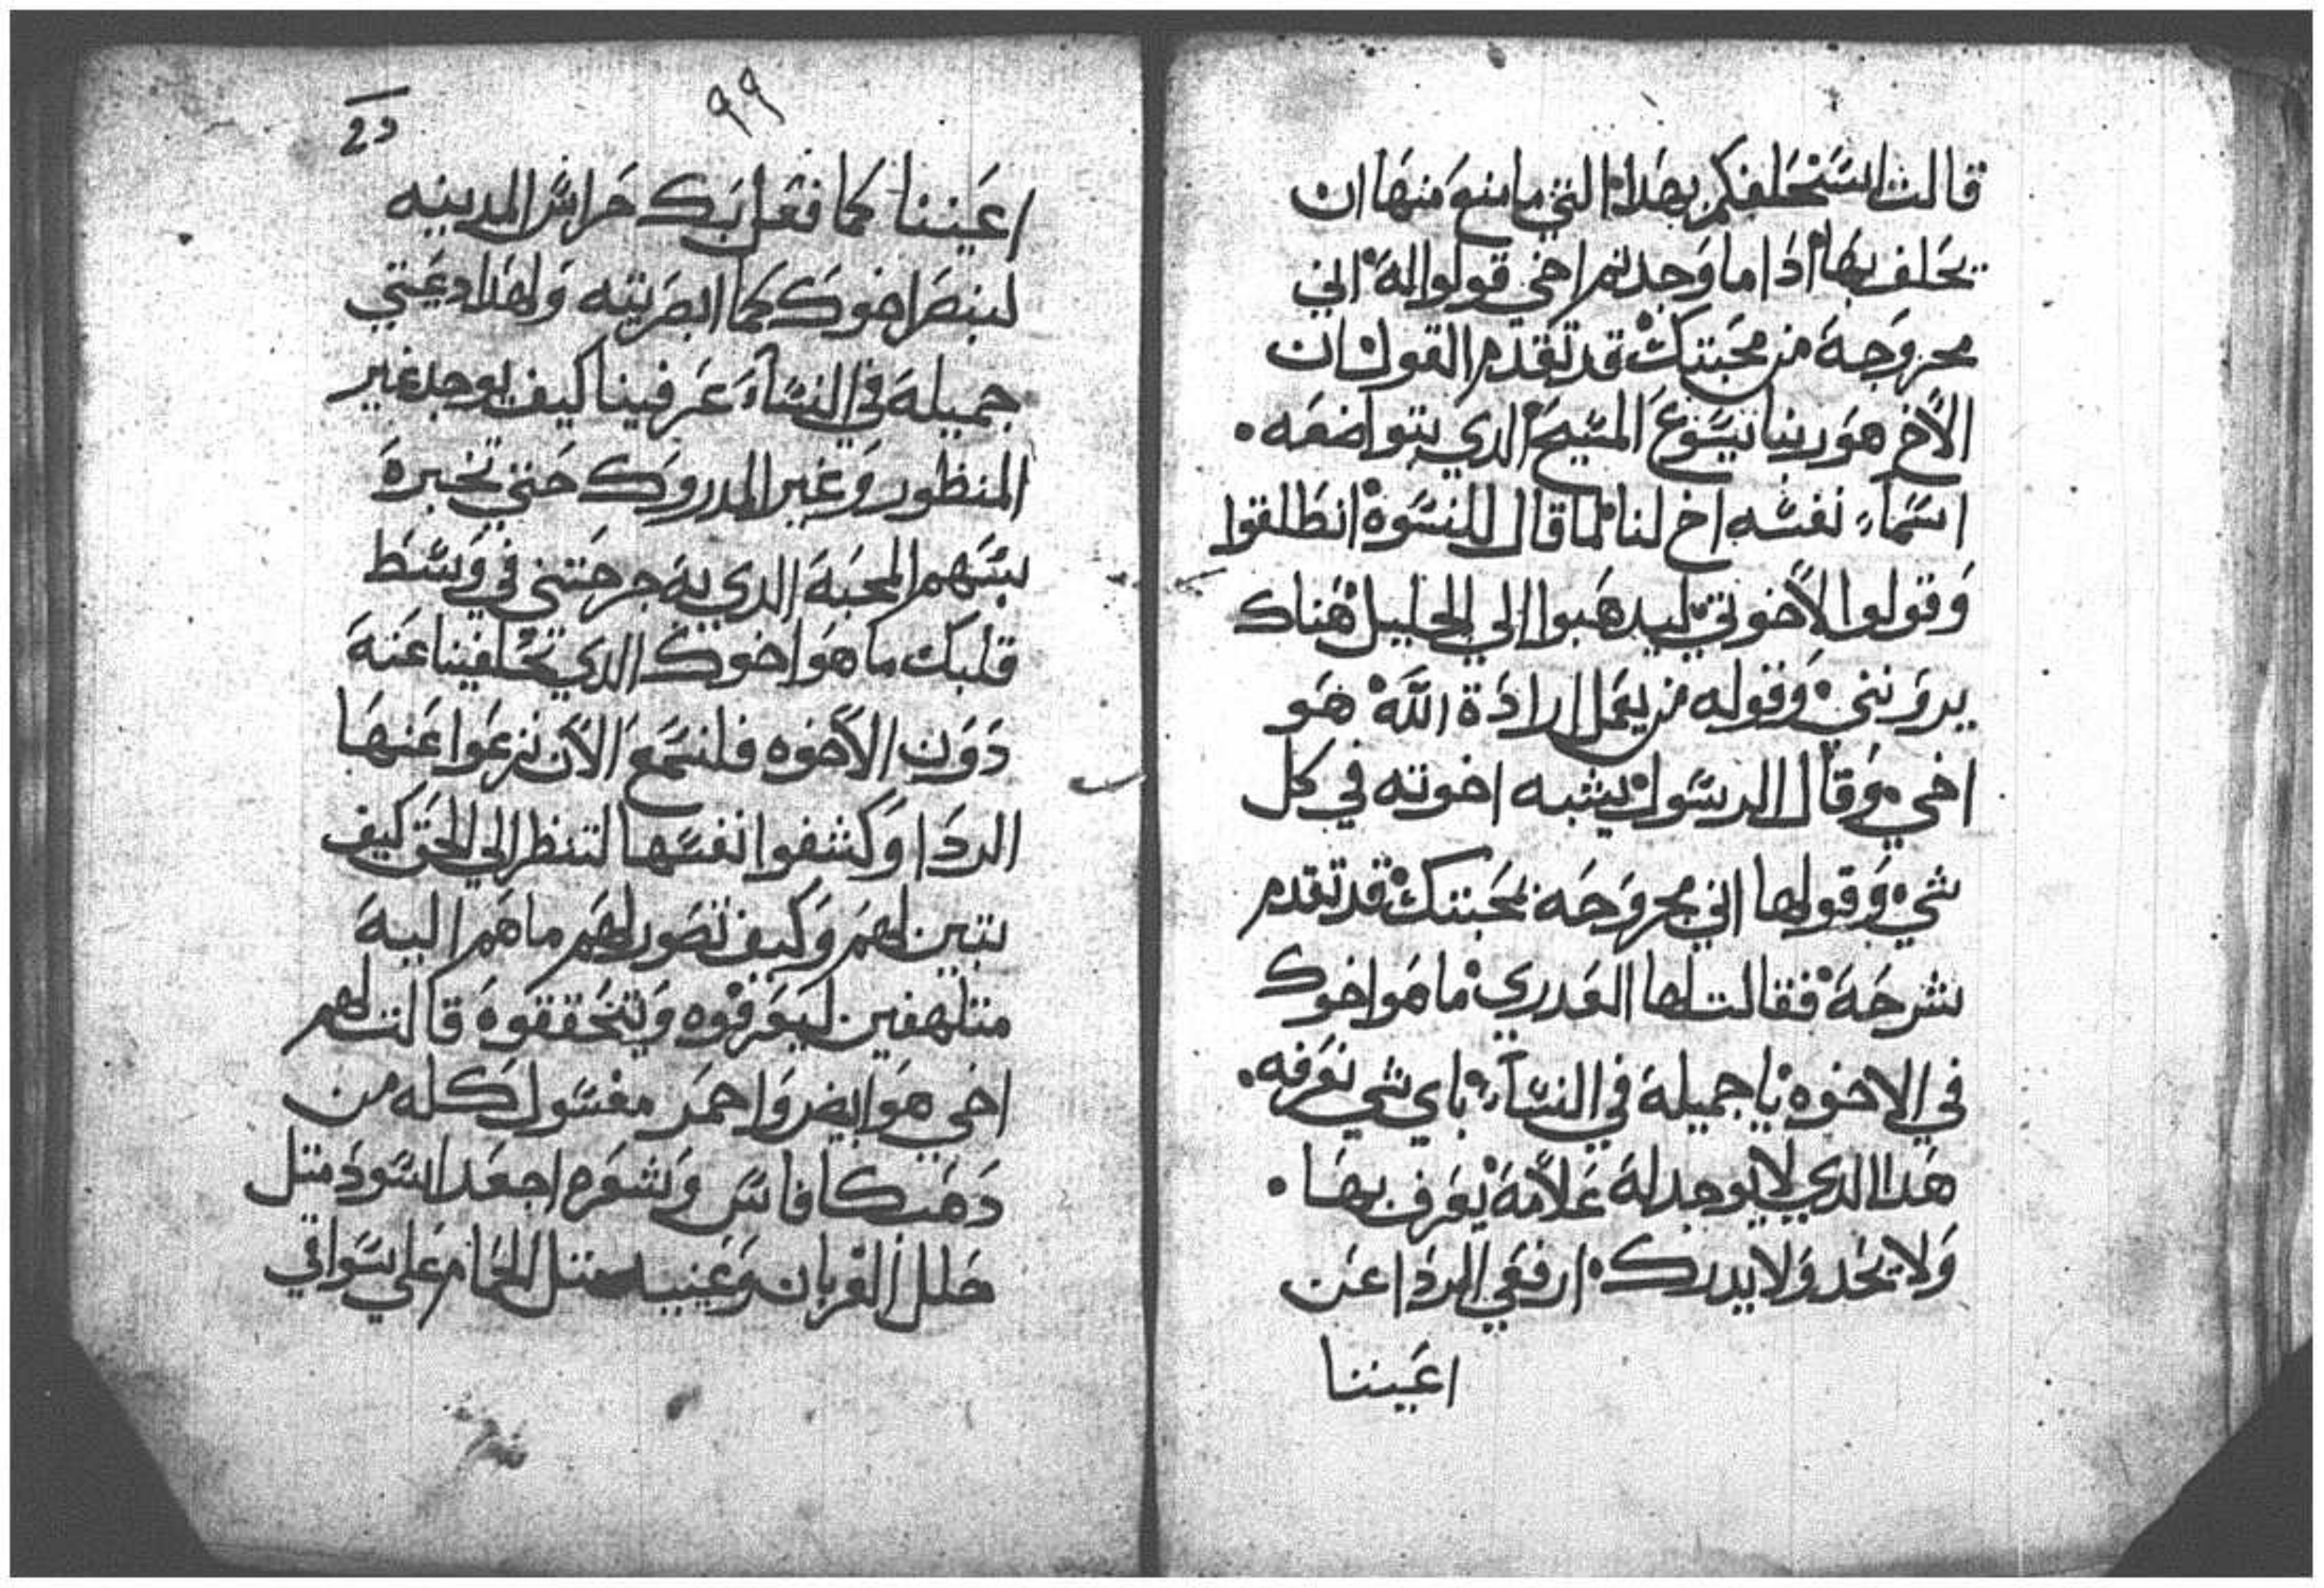 قالت استحلفكم بهدا التي مامنع منها ان
يحلف بها ادا ما وجدتم اخي قولوا له اني
مجروحة من محبتك قد تقدم القول ان
الاخ هو ربنا يسوع المسيح الدي بتواضعه
اسماء نفسه اخ لنا لما قال للنسوة انطلقوا
وقولوا لاخوتي ليدهبوا الي الجليل هناك
يرونني وقوله من يعمل ارادة الله هو
اخي وقال الرسول يشبه اخوته في كل
شي وقولها اني مجروحه بمحبتك قد تقدم
شرحة فقالت لها العدري ما هو اخوك
في الاخوه يا جميلة في النساء باي شي نعرفه
هدا الدي لا يوجد له علامة يعرف بها
ولا يحد ولا يدرك ارفعي الردا عن
اعيننا
٩٩
اعيننا كما فعل بك حراس المدينه
لننصر اخوك كما ابصرتيه ولهدا دعيتي
جميلة في النساء عرفينا كيف يوجد غير
المنظور وغير المدروك حتي نخبرة
بسهم المحبة الدي به جرحتني في وسط
قلبك ما هو اخوك الدي تحلفينا عنة
دون الاخوه فلنسمع الان نزعوا عنها
الردا وكشفوا نفسها لتنظر الي الحق كيف
تبين لهم وكيف تصور لهم ما هم الية
متلهفين ليعرفوه ويتحققوه قالت لهم
اخي هو ابيض واحمر مغسول كله من
دهب كافاس وشعره اجعد اسود متل
حلل الغربان وعينيه متل الحمام علي سواقي